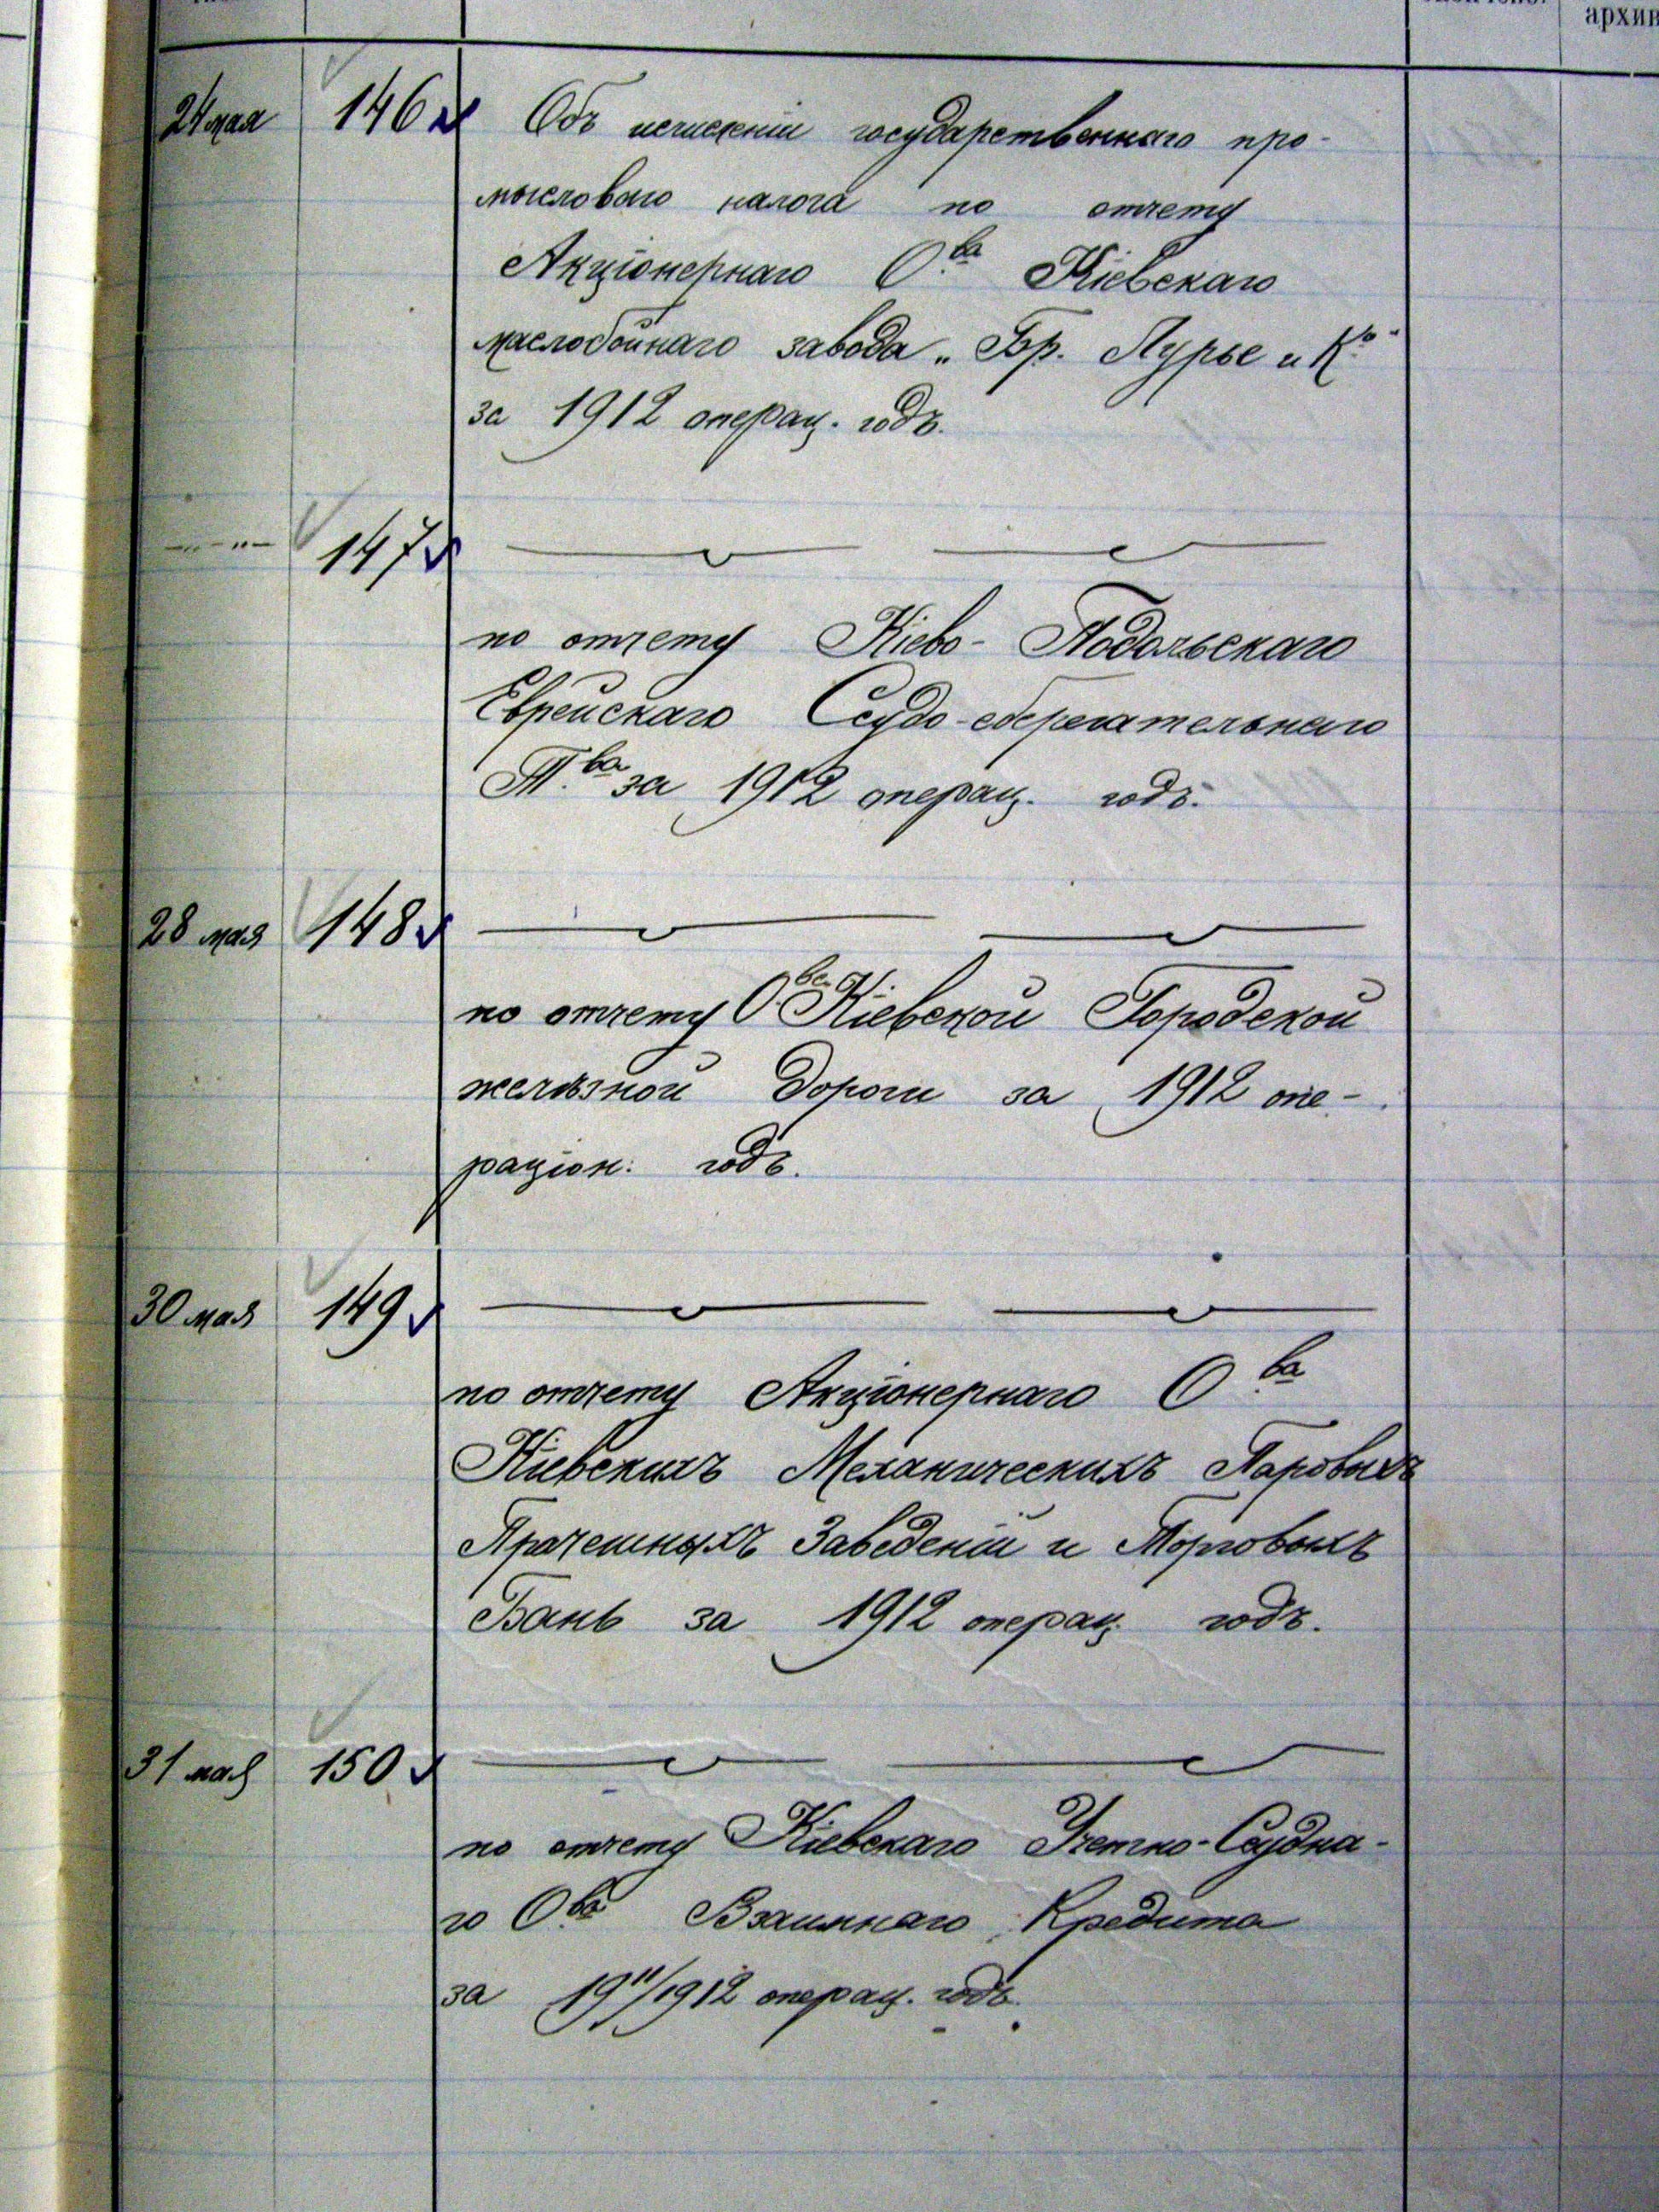 архив
24 мая 146 Объ исчисленіи государственнаго про-
мысловаго налога по отчету
Акціонернаго О-ва Кіевскаго
маслобойнаго завода „Бр. Лурье и Ко"
за 1912 операц. годъ.
—"— 147
по отчету Кіево-Подольскаго
Еврейскаго Ссудо-сберегательнаго
Т-ва за 1912 операц. годъ.
28 мая 148
по отчету О-ва Кіевской Городской
желѣзной дороги за 1912 опе-
раціон. годъ.
30 мая 149
по отчету Акціонернаго О-ва
Кіевскихъ Механическихъ Паровыхъ
Прачешныхъ Заведеній и Торговыхъ
Бань за 1912 операц. годъ.
31 мая 150
по отчету Кіевскаго Учетно-Ссудна-
го О-ва Взаимнаго Кредита
за 1911/1912 операц. годъ.